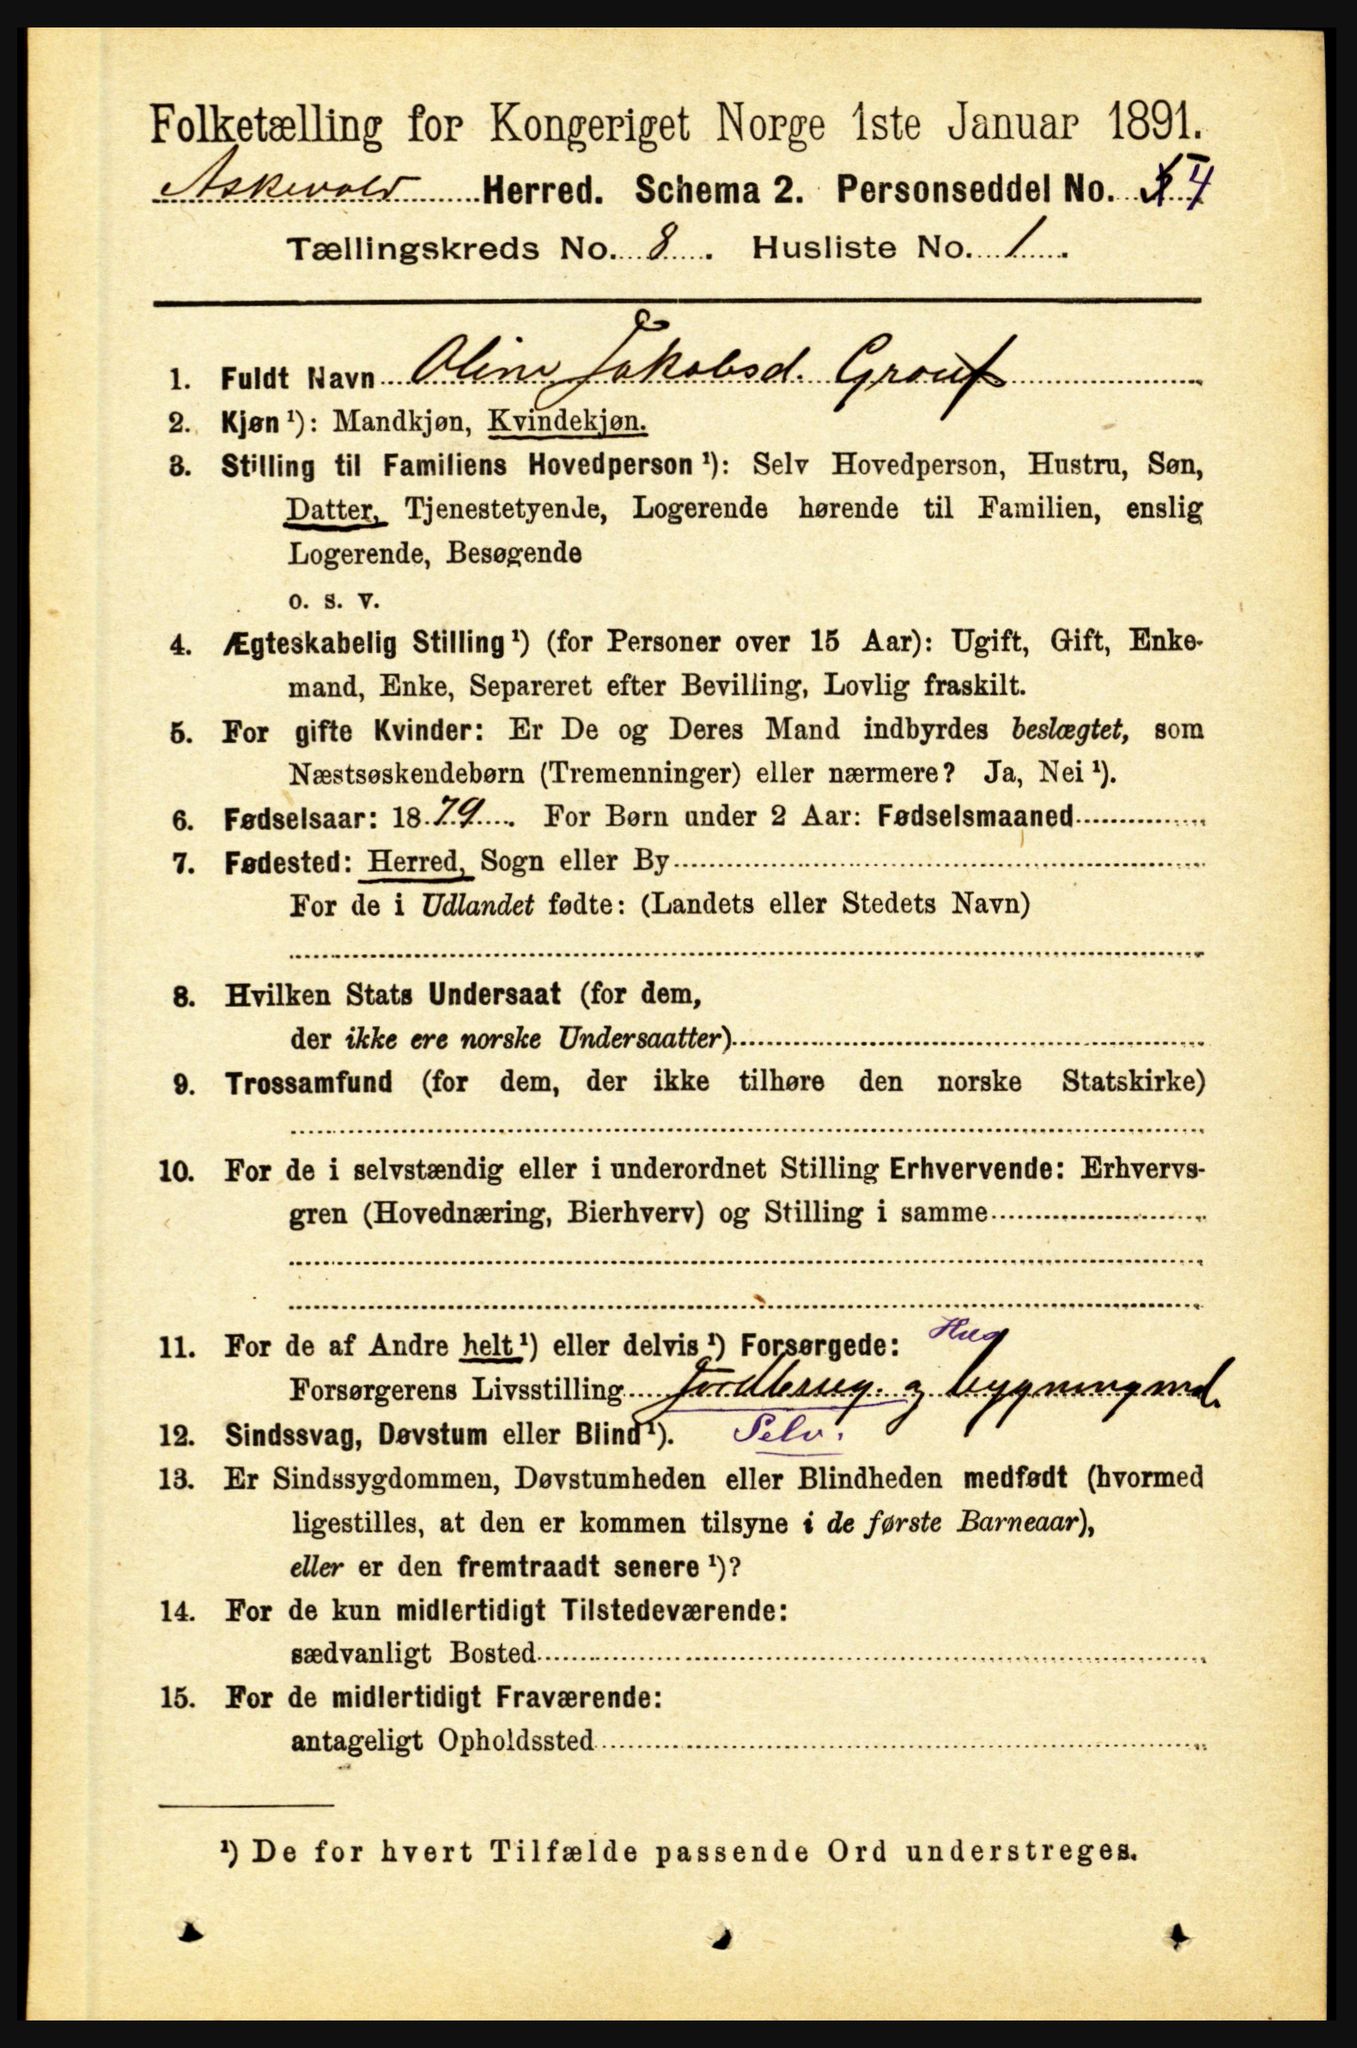 Folketælling for Kongeriget Norge 1ste Januar 1891.
Askevold Herred. Schema 2. Personseddel No. 4
Tællingskreds No. 8. Husliste No. 1.
1. Fuldt Navn Oline Jakobsd. Grouf
2. Kjøn ¹): Mandkjøn, Kvindekjøn.
3. Stilling til Familiens Hovedperson ¹): Selv Hovedperson, Hustru, Søn,
Datter, Tjenestetyende, Logerende hørende til Familien, enslig
Logerende, Besøgende
o. s. v.
4. Ægteskabelig Stilling ¹) (for Personer over 15 Aar): Ugift, Gift, Enke-
mand, Enke, Separeret efter Bevilling, Lovlig fraskilt.
5. For gifte Kvinder: Er De og Deres Mand indbyrdes beslægtet, som
Næstsøskendebørn (Tremenninger) eller nærmere? Ja, Nei ¹).
6. Fødselsaar: 1879. For Børn under 2 Aar: Fødselsmaaned
7. Fødested: Herred, Sogn eller By
For de i Udlandet fødte: (Landets eller Stedets Navn)
8. Hvilken Stats Undersaat (for dem,
der ikke ere norske Undersaatter)
9. Trossamfund (for dem, der ikke tilhøre den norske Statskirke)
10. For de i selvstændig eller i underordnet Stilling Erhvervende: Erhvervs-
gren (Hovednæring, Bierhverv) og Stilling i samme
11. For de af Andre helt ¹) eller delvis ¹) Forsørgede: Hus
Forsørgerens Livsstilling Jordbrug. og bygningmd.
12. Sindssvag, Døvstum eller Blind ¹). Selv.
13. Er Sindssygdommen, Døvstumheden eller Blindheden medfødt (hvormed
ligestilles, at den er kommen tilsyne i de første Barneaar),
eller er den fremtraadt senere ¹)?
14. For de kun midlertidigt Tilstedeværende:
sædvanligt Bosted
15. For de midlertidigt Fraværende:
antageligt Opholdssted
¹) De for hvert Tilfælde passende Ord understreges.